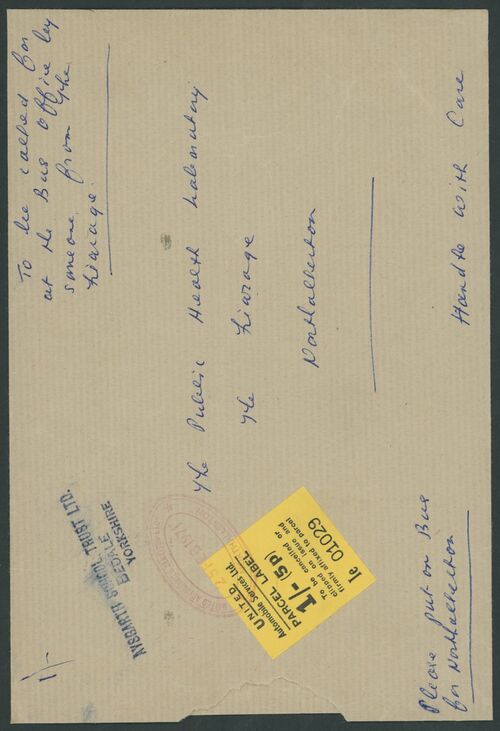 To be called for
at the Bus Office by
someone from the
Friarage.
The Public Health Laboratory
The Friarage
Northallerton
Handle with Care
Please put on Bus
for Northallerton
1/-
AYSGARTH SCHOOL TRUST LTD.
BEDALE
YORKSHIRE
UNITED
Automobile Services Ltd.
PARCEL LABEL
1/- (5p)
To be cancelled or
clipped on issue and
firmly affixed to parcel
le 01029
1971